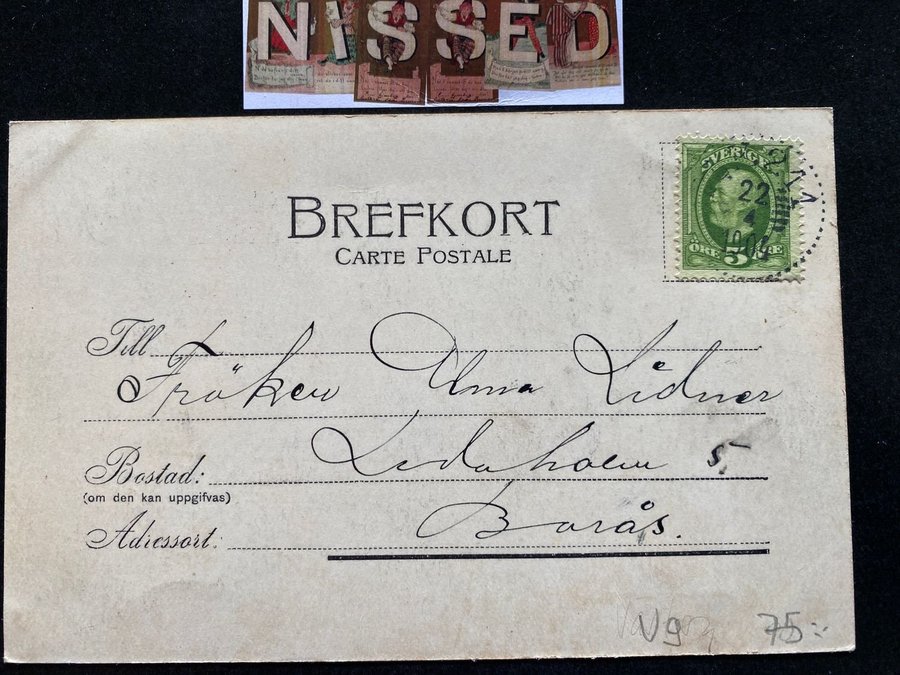 NISSED
BREFKORT
CARTE POSTALE
SVERIGE
22
4
ÖRE 5 ÖRE
Till
Fröken Alma Lidner
Bostad:
(om den kan uppgifvas)
5
Adressort:
Borås.
Vg
75:-